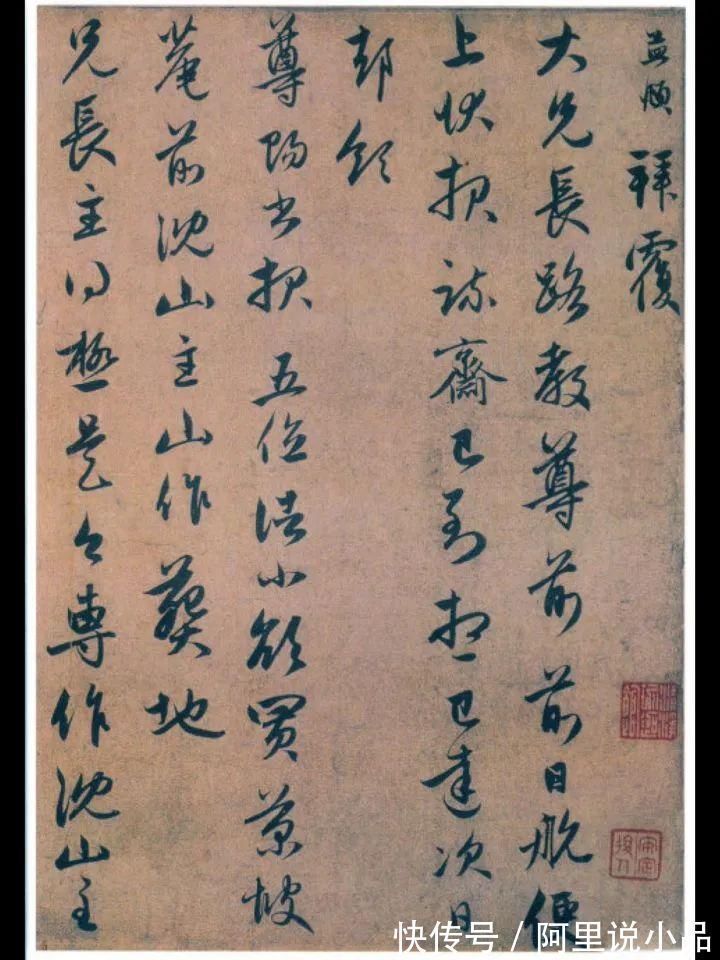 孟頫 拜覆
大兄長路教尊前 前日航便
上狀想疏齋已到想已達次日
却領
尊賜書 五位結小欲買菜坡
菴前沈山主山作葬地
兄長主之極是今專作沈山主
快传号 / 阿里说小品